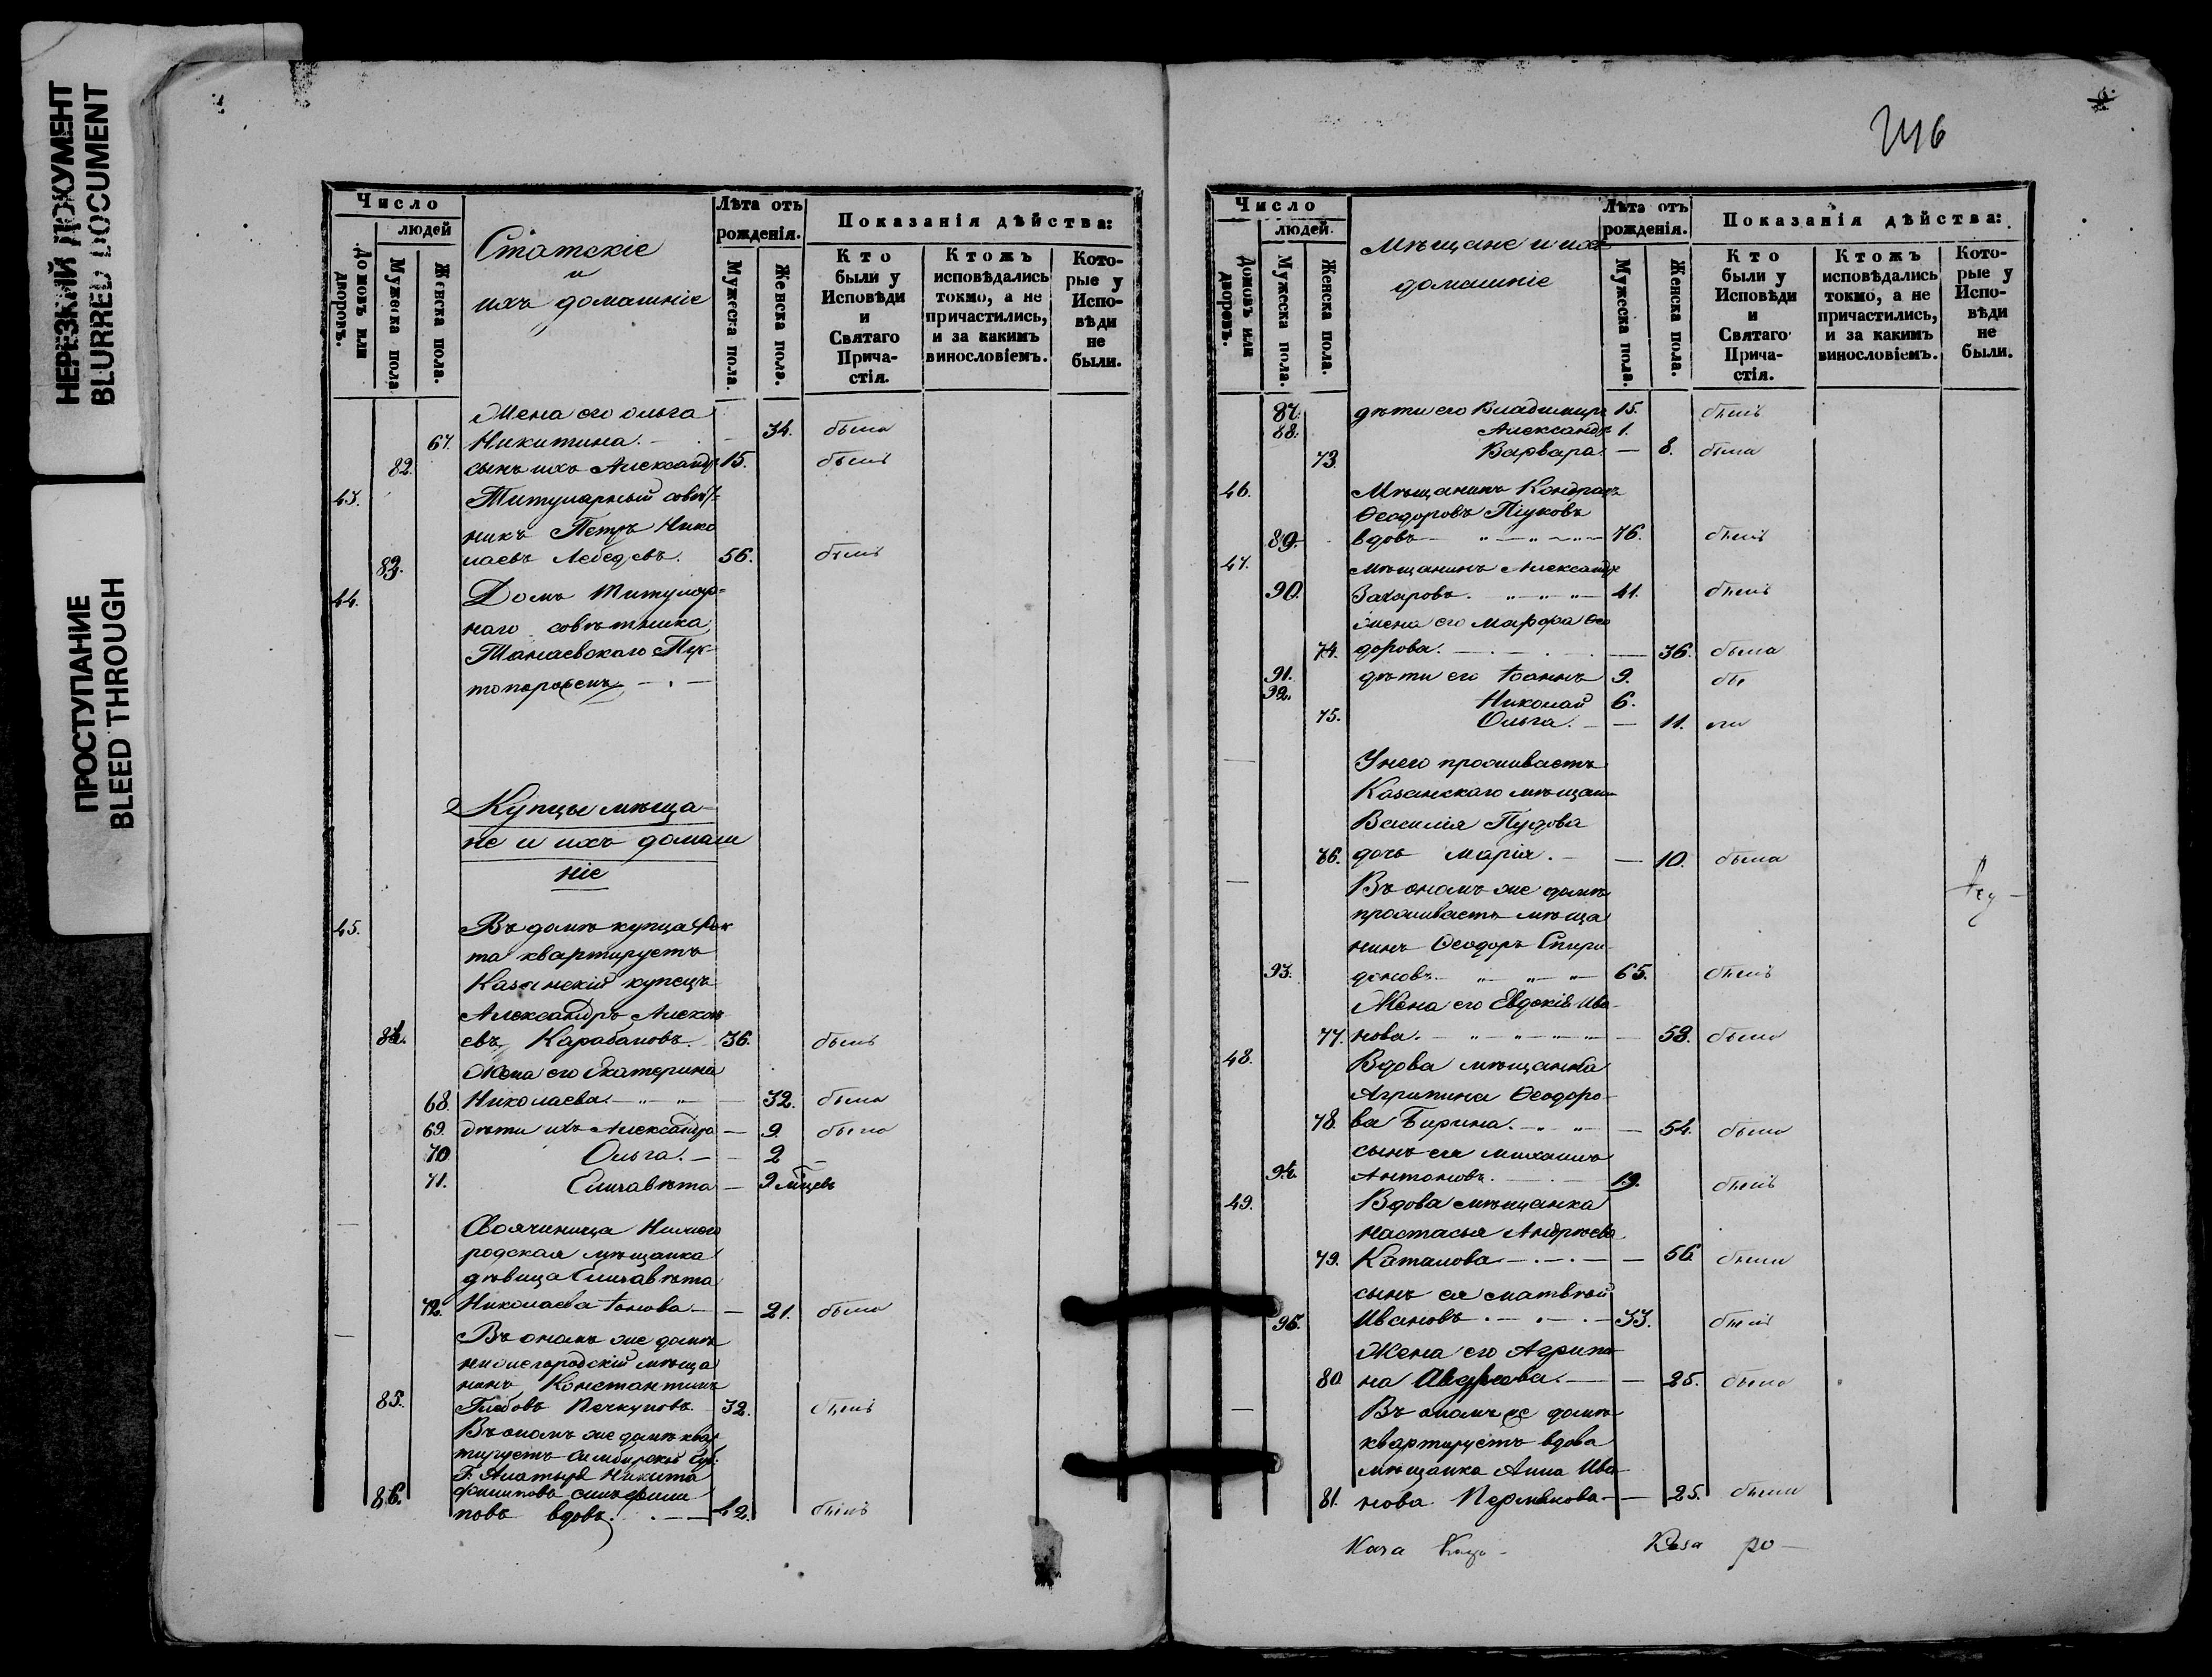 НЕРЕЗКИЙ ДОКУМЕНТ
BLURRED DOCUMENT
ПРОСТУПАНИЕ
BLEED THROUGH
Число
людей
Домовъ или дворовъ.
Мужеска пола
Женска пола.
Статскіе
и
ихъ домашніе
Лѣта отъ рожденія.
Мужеска пола.
Женска пола.
Показанія дѣйства:
Кто были у Исповѣди и Святаго Прича-стія.
Ктожъ исповѣдались токмо, а не причастились, и за какимъ винословіемъ.
Кото-рые у Испо-вѣди не были.
Жена его Ольга
67. Никитина. — 34. была
82. сынъ ихъ Александръ 15. былъ
43. Титулярный совѣт=
никъ Петръ Нико
83. лаевъ Лебедевъ. 56. былъ
44. Домъ Титуляр=
наго совѣтника
45. Въ домѣ купца
та квартируетъ
Казанскій купецъ
Александръ Алексѣ
84. евъ Карабановъ. 36. былъ
Жена его Екатерина
68. Николаева — „ — 32. была
69. дѣти ихъ Александра — 9. была
70 Ольга. — 2 —
71. Елизавета — 9 мѣсцевъ
Купцы мѣща
не и ихъ домаш
ніе
Своячиница Нижего
родская мѣщанка
дѣвица Елизавета
72. Николаева — 21. была
Въ ономъ же домѣ
нижегородскій мѣща
нинъ Константинъ
85. Глебовъ 32. былъ
Въ ономъ же домѣ квар
тируетъ Симбирской Губ.
Г. Алатыря Никита
86. новъ вдовъ. — 42. былъ
246
Число
людей.
Домовъ или дворовъ.
Мужеска пола.
Женска пола.
Мѣщане и ихъ
домашніе
Лѣта отъ рожденія.
Мужеска пола.
Женска пола.
Показанія дѣйства:
Кто были у Исповѣди и Святаго Прича-стія.
Ктожъ исповѣдались токмо, а не причастились, и за какимъ винословіемъ.
Кото-рые у Испо-вѣди не были.
87. дѣти его Владимиръ 15. былъ
88. Александръ 1.
73. Варвара. — 8. была
46. Мѣщанинъ Кондратъ
Ѳеодоровъ
89. вдовъ — „ — „ — „ — 76. былъ
47. Мѣщанинъ Александръ
90. Захаровъ. „ — „ — „ — 41. былъ
жена его Марфа Ѳео
74. дорова. — — 36. была
91. дѣти его Іоаннъ 9. бы
92. Николай 6.
75. Ольга. — — 11. ли
У него проживаетъ
Казанскаго мѣщан
Василія Пудова
76. дочь Марія. — — 10. была
Въ ономъ же домѣ
проживаетъ мѣща
нинъ Ѳеодоръ Спири
93. доновъ — „ — „ — 65. былъ
Жена его Евдокія Ива
77. нова. — „ — „ — „ — 58. была
48. Вдова мѣщанка
Агрипина Ѳеодоро
78. ва Бирина. — „ „ — 54. была
сынъ ея Михаилъ
94. Антоновъ. — 19. былъ
49. Вдова мѣщанка
Настасья Андреева
79. Каталова — . — . — 56. была
сынъ ея Матвѣй
95. Ивановъ . — . — . — 33. былъ
Жена его Агрипи
80. на — 25. была
Въ ономъ же домѣ
квартируетъ вдова
мѣщанка Анна Ива
81. нова Пермякова — 25. были